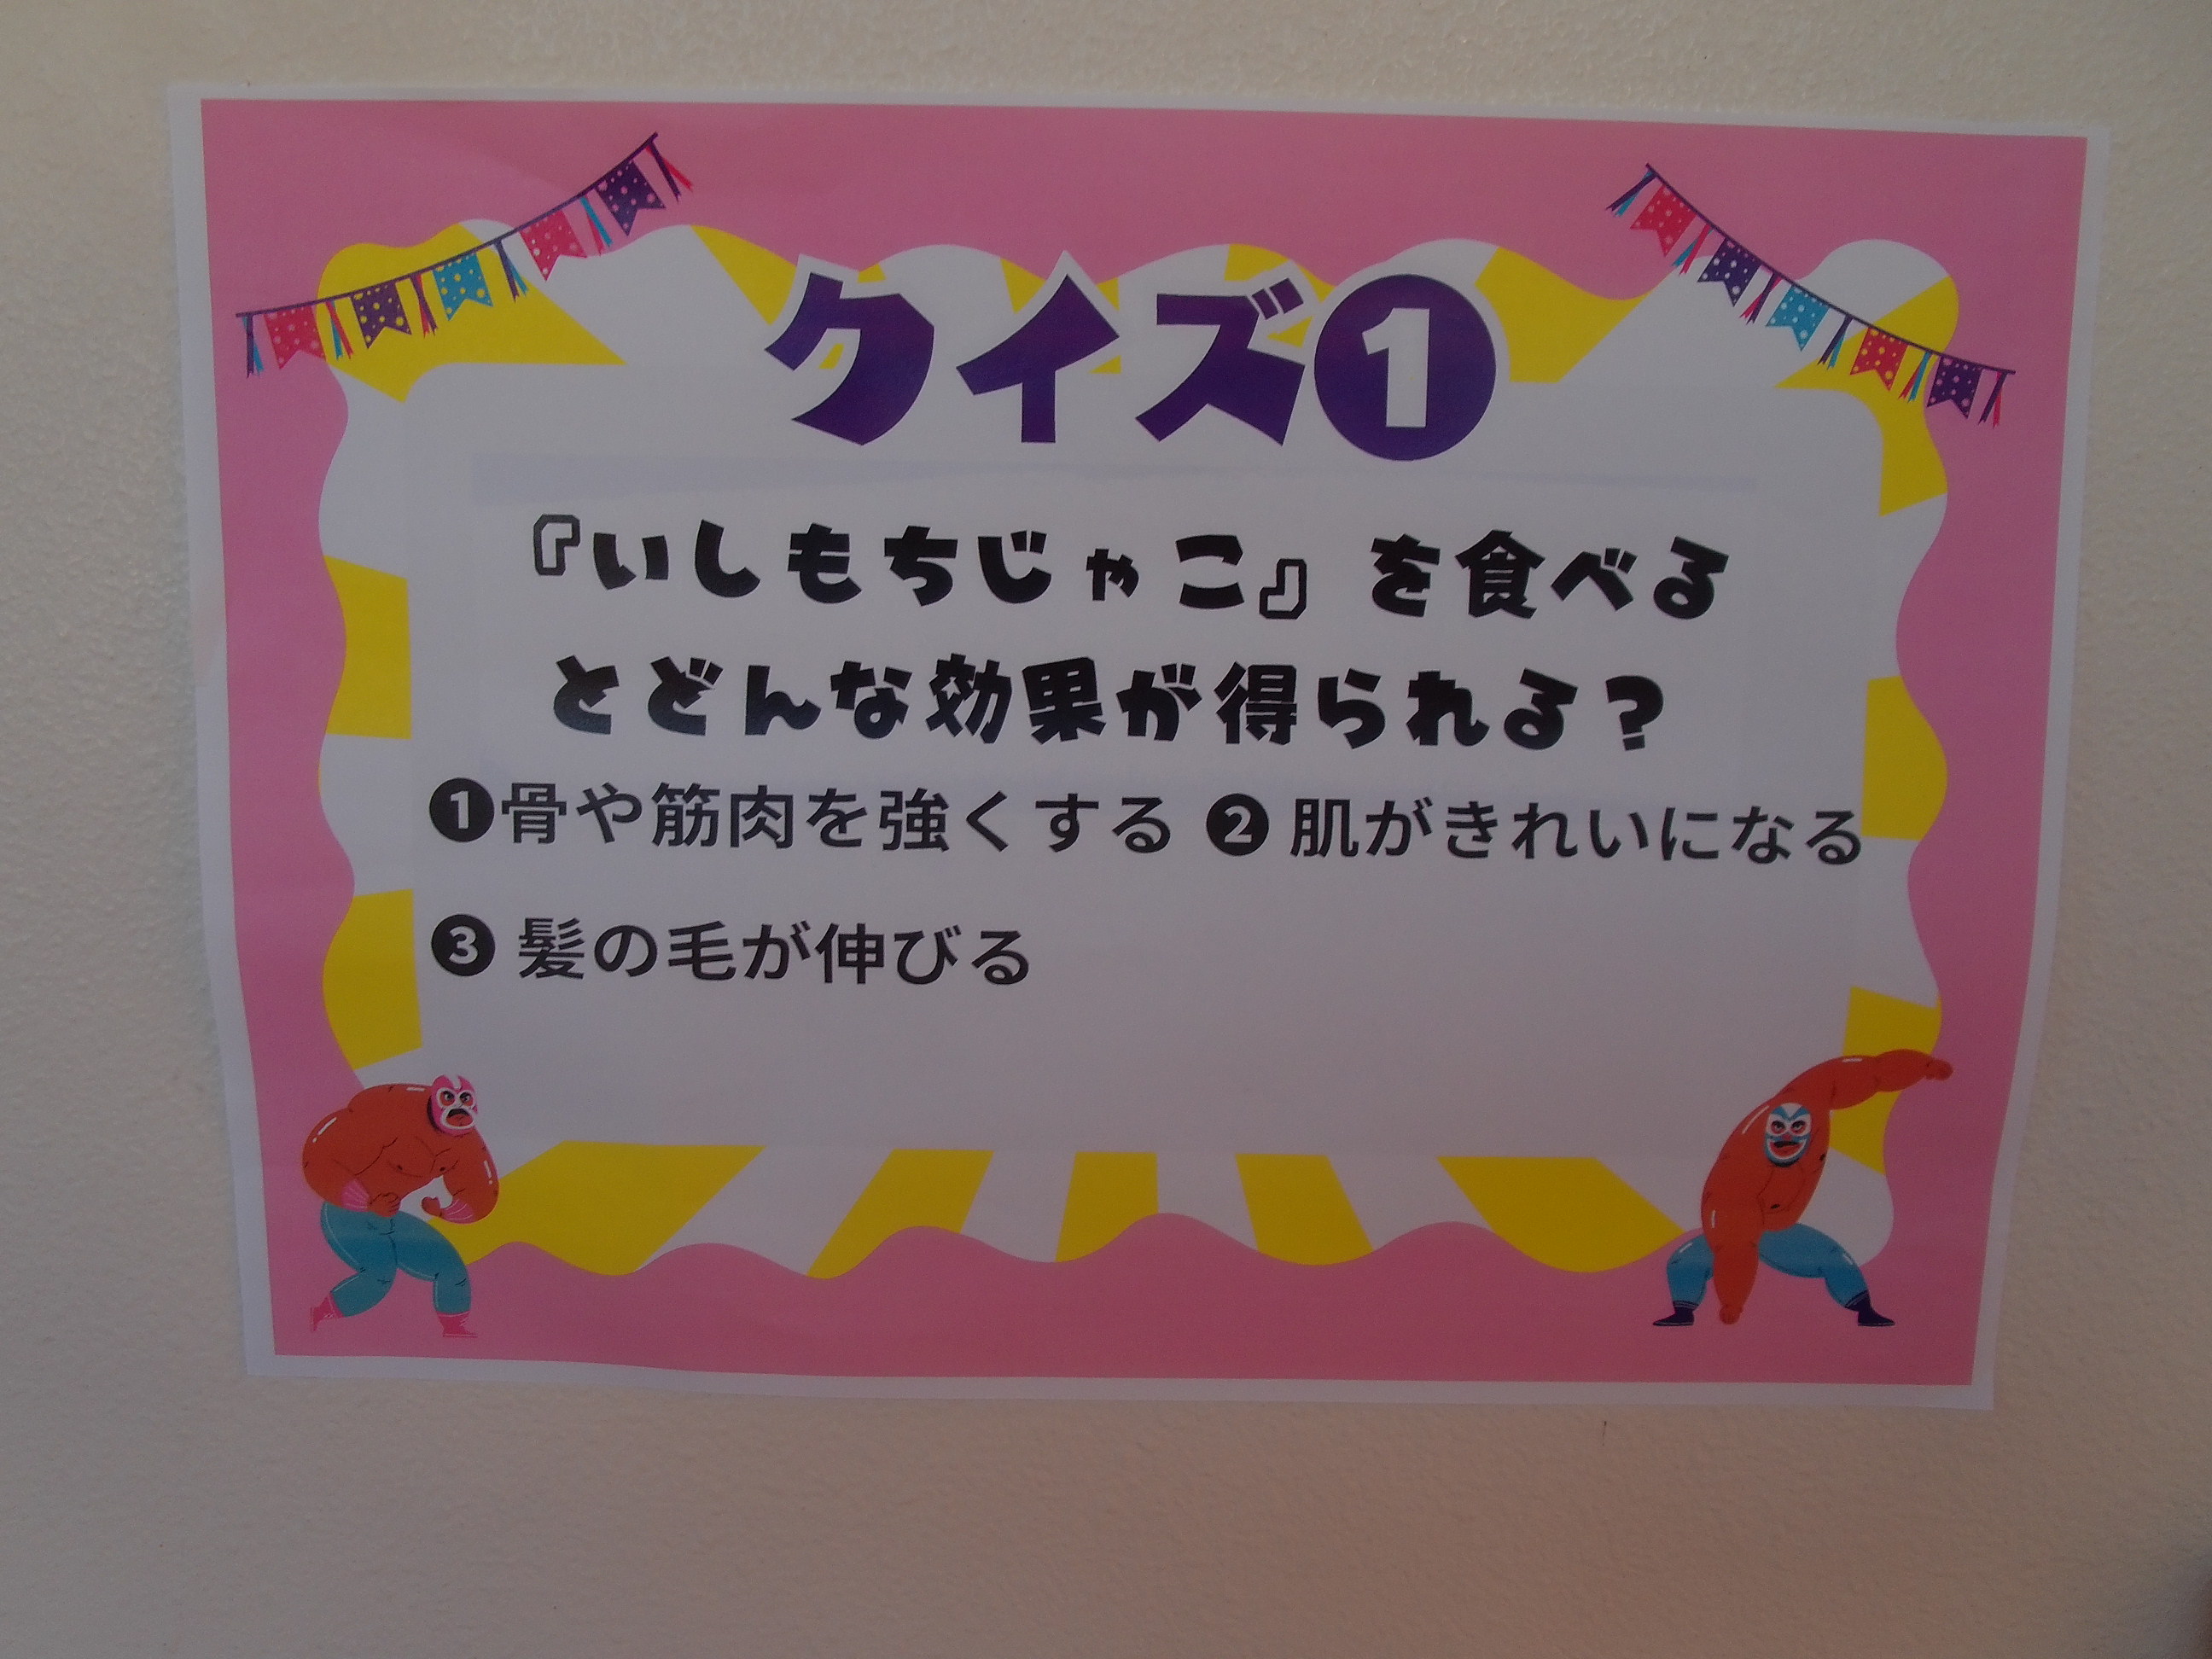 クイズ❶
『いしもちじゃこ』を食べる
とどんな効果が得られる?
❶骨や筋肉を強くする ❷ 肌がきれいになる
❸ 髪の毛が伸びる